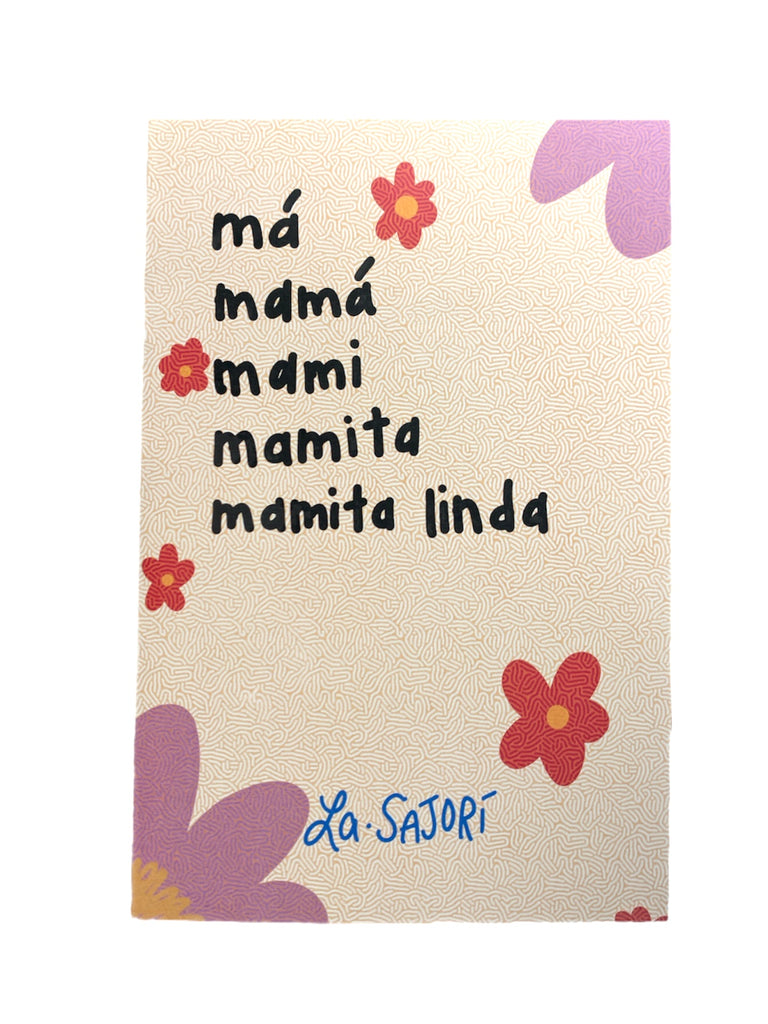 má
mamá
mami
mamita
mamita linda
La·SAJORÍ